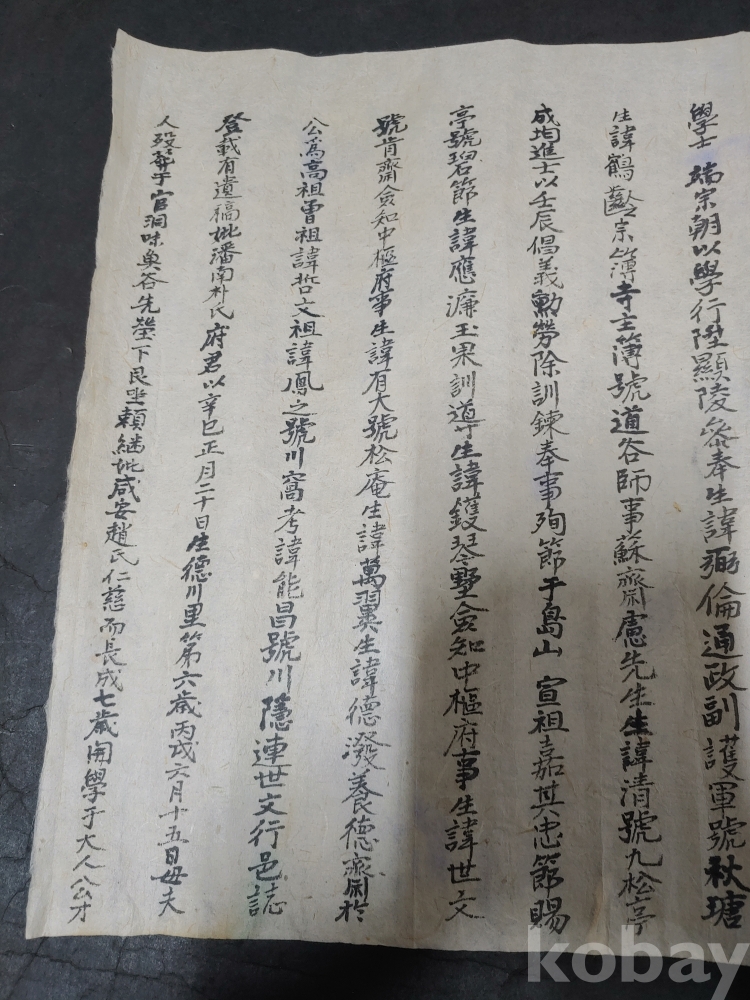 學士 端宗朝以學行陞顯陵參奉生諱弼倫通政副護軍號秋塘
生諱鶴齡宗簿寺主簿號道谷師事蘇齋盧先生生諱清號九松亭
成均進士以壬辰倡義勳勞除訓鍊奉事殉節于島山 宣祖嘉其忠節賜
亭號碧節生諱應濂玉果訓導生諱鑊琴墅僉知中樞府事生諱世文
號肯齋僉知中樞府事生諱有大號松庵生諱萬翼生諱德潑養德齋於
公爲高祖曾祖諱哲文祖諱鳳之號川窩考諱能昌號川隱連世文行邑誌
登載有遺稿妣潘南朴氏 府君以辛巳正月二十日生德川里第六歲丙戌六月十五日母夫
人歿葬于官洞味奥谷先塋下艮坐賴繼妣咸安趙氏仁慈而長成七歲開學于大人公才
kobay